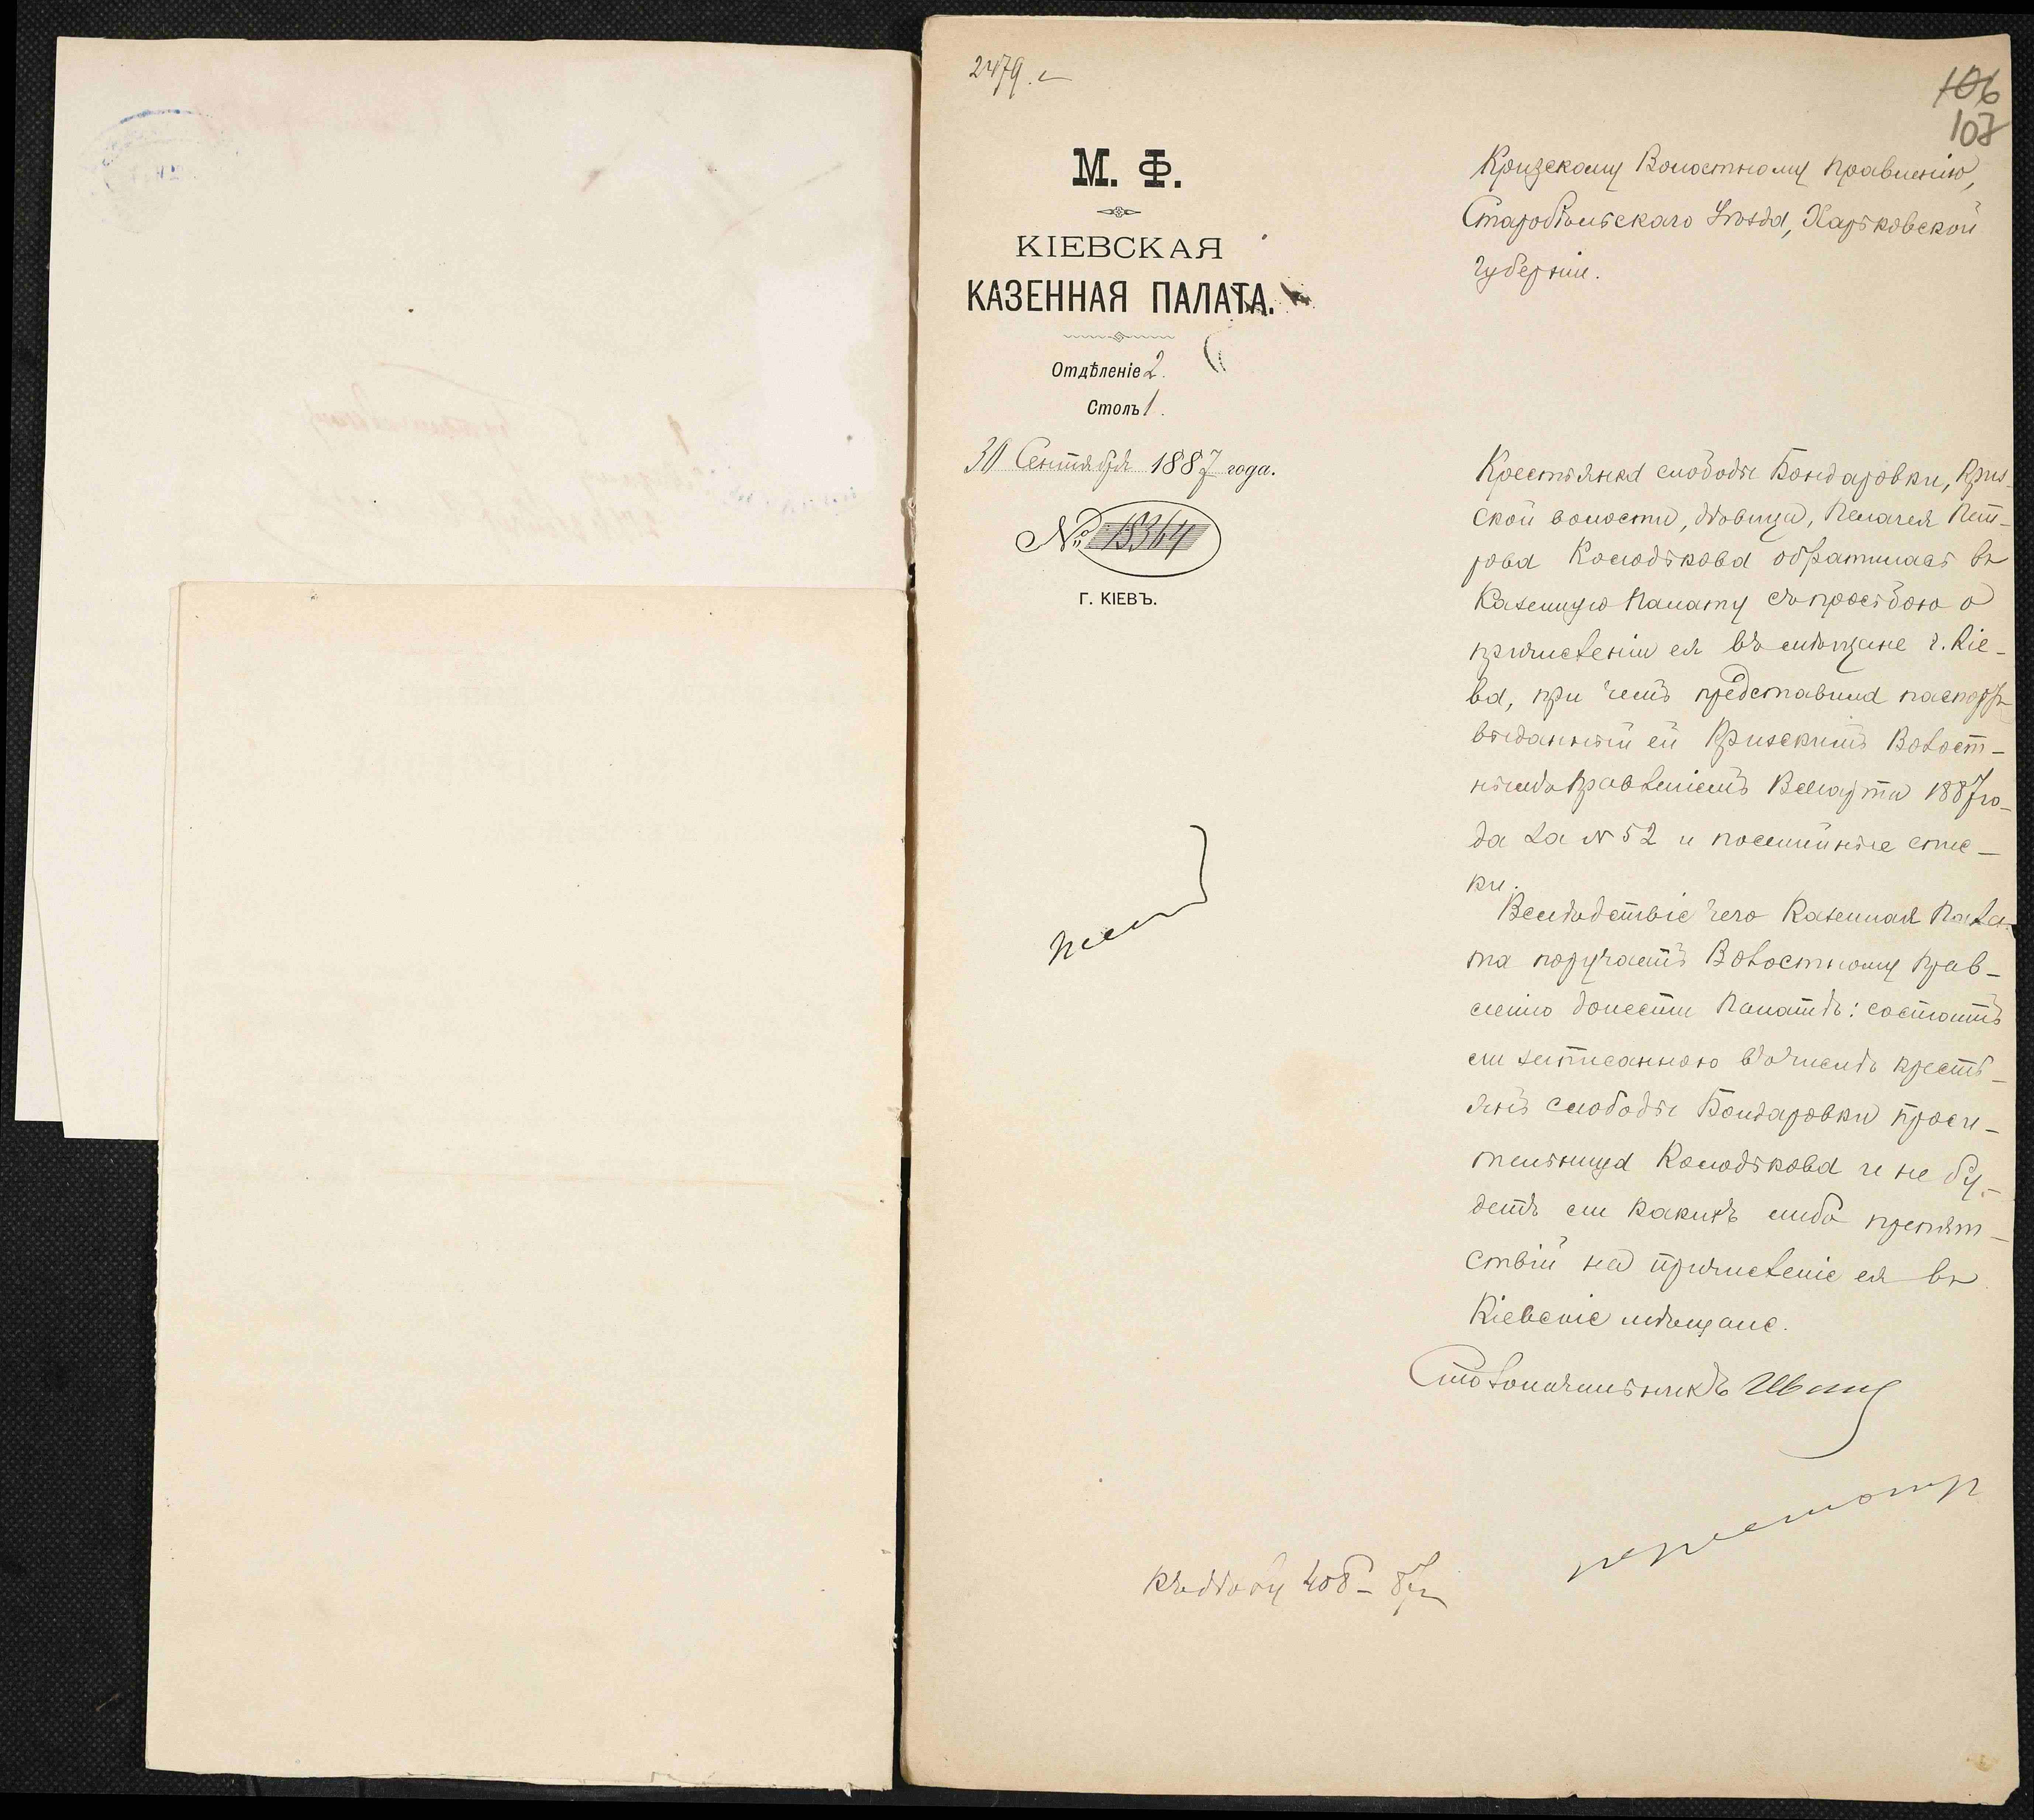 2479.
106
107
М. Ф.
КІЕВСКАЯ
КАЗЕННАЯ ПАЛАТА.
Отдѣленіе 2.
Столъ 1.
30 Сентября 1887 года.
№ 18364
Г. КІЕВЪ.
Кризскому Волостному Правленію,
Старобѣльскаго Уѣзда, Харьковской
Губерніи.
Крестьянка слободы Бондаровки, Криз-
ской волости, дѣвица, Пелагея Пет-
рова Колодькова обратилась въ
Казенную Палату съ прозьбою о
причисленіи ея въ мѣщане г. Кіе-
ва, при чемъ представила паспортъ
выданный ей Кризскимъ Волост-
нымъ Правленіемъ 13 марта 1887 го-
да за № 52 и посемейные спис-
ки.
Вслѣдствіе чего Казенная Пала-
та поручаетъ Волостному Прав-
ленію донести Палатѣ: состоитъ
ли записанною въ числѣ кресть-
янъ слободы Бондаровки проси-
тельница Колодькова и не бу-
детъ ли какихъ либо препят-
ствій на причисленіе ея въ
Кіевскіе мѣщане.
Столоначальникъ
къ дѣлу 408 - 87 г.